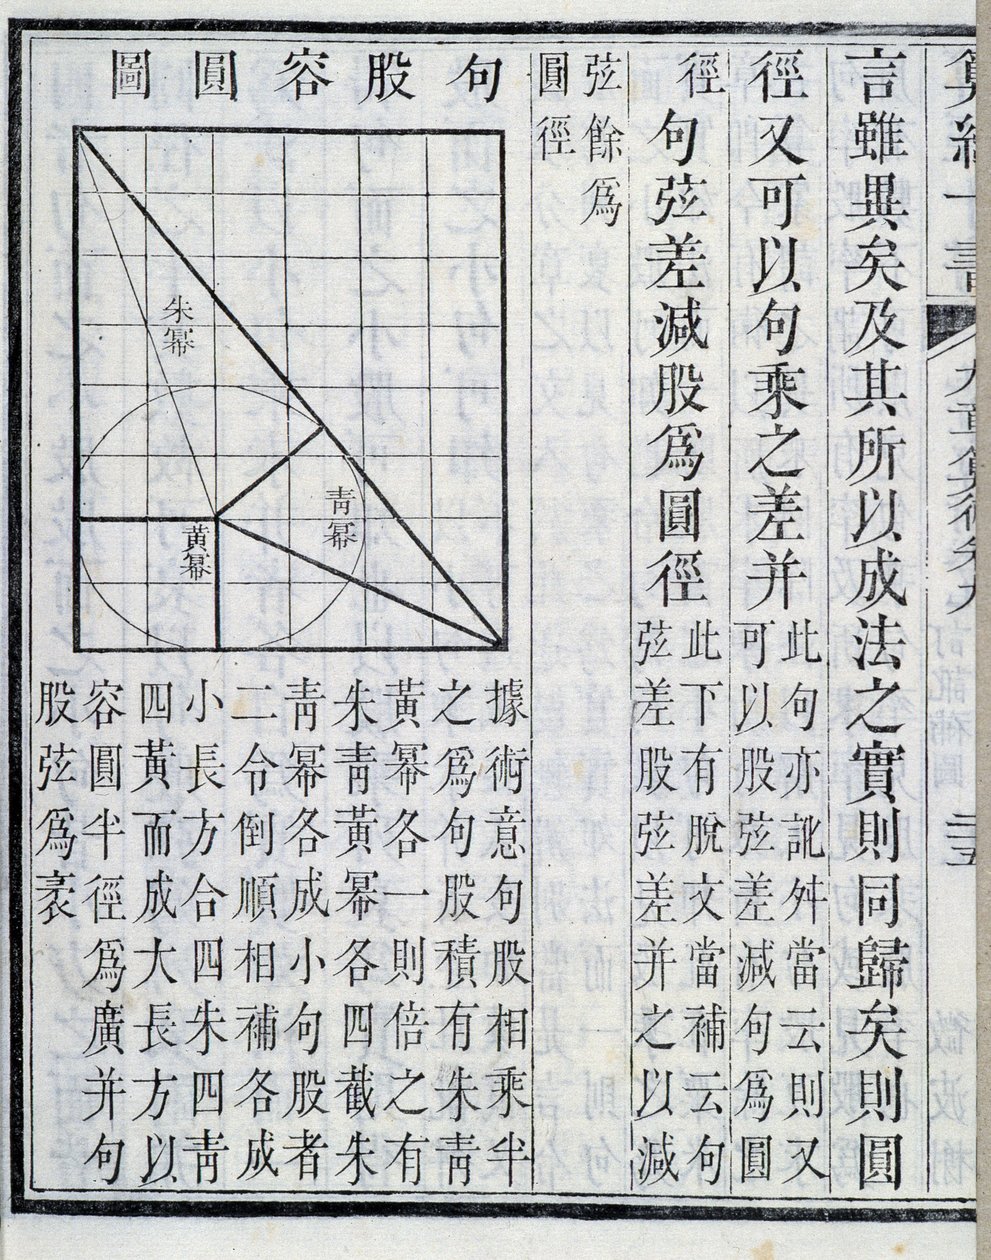 算經十書
九章算術卷九
言雖異矣及其所以成法之實則同歸矣則圓
徑又可以句乘之差并
此句亦訛舛當云則又
可以股弦差減句爲圓
徑
句弦差減股爲圓徑
此下有脫文當補云句
弦差股弦差并之以減
弦餘爲
圓徑
句股容圓圖
朱冪
青冪
黃冪
據術意句股相乘半
之爲句股積有朱青
黃冪各一則倍之有
朱青黃冪各四截朱
青冪各成小句股者
二令倒順相補各成
小長方合四朱四青
四黃而成大長方以
容圓半徑爲廣并句
股弦爲袤